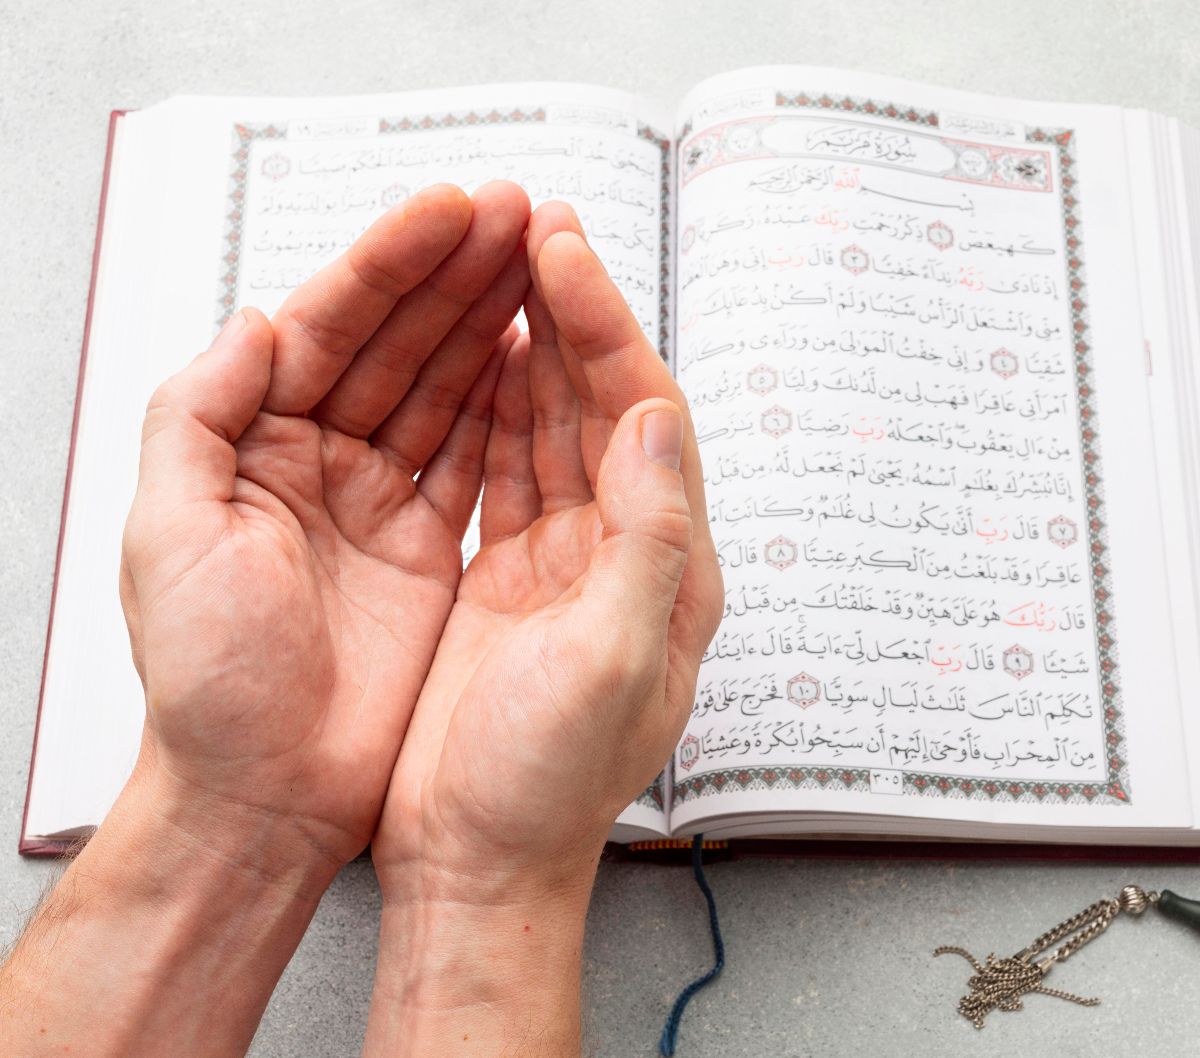 سُورَةُ مَرْيَمَ
بِسْمِ ٱللَّهِ ٱلرَّحْمَٰنِ ٱلرَّحِيمِ
كٓهيعٓصٓ ١ ذِكْرُ رَحْمَتِ رَبِّكَ عَبْدَهُۥ زَكَرِيَّآ
إِذْ نَادَىٰ رَبَّهُۥ نِدَآءً خَفِيًّا ٣ قَالَ رَبِّ إِنِّى وَهَنَ ٱلْعَظْمُ
مِنِّى وَٱشْتَعَلَ ٱلرَّأْسُ شَيْبًا وَلَمْ أَكُنۢ بِدُعَآئِكَ
شَقِيًّا ٤ وَإِنِّى خِفْتُ ٱلْمَوَٰلِىَ مِن وَرَآءِى وَكَانَتِ
ٱمْرَأَتِى عَاقِرًا فَهَبْ لِى مِن لَّدُنكَ وَلِيًّا ٥ يَرِثُنِى
مِنْ ءَالِ يَعْقُوبَ وَٱجْعَلْهُ رَبِّ رَضِيًّا ٦
إِنَّا نُبَشِّرُكَ بِغُلَٰمٍ ٱسْمُهُۥ يَحْيَىٰ لَمْ نَجْعَل لَّهُۥ مِن قَبْلُ
٧ قَالَ رَبِّ أَنَّىٰ يَكُونُ لِى غُلَٰمٌ وَكَانَتِ
عَاقِرًا وَقَدْ بَلَغْتُ مِنَ ٱلْكِبَرِ عِتِيًّا ٨ قَالَ
قَالَ رَبُّكَ هُوَ عَلَىَّ هَيِّنٌ وَقَدْ خَلَقْتُكَ مِن قَبْلُ
شَيْـًٔا ٩ قَالَ رَبِّ ٱجْعَل لِّىٓ ءَايَةً قَالَ ءَايَتُكَ
تُكَلِّمَ ٱلنَّاسَ ثَلَٰثَ لَيَالٍ سَوِيًّا ١٠ فَخَرَجَ عَلَىٰ
مِنَ ٱلْمِحْرَابِ فَأَوْحَىٰٓ إِلَيْهِمْ أَن سَبِّحُوا۟ بُكْرَةً وَعَشِيًّا ١١
٣٠٥
يَٰيَحْيَىٰ خُذِ ٱلْكِتَٰبَ بِقُوَّةٍ وَءَاتَيْنَٰهُ ٱلْحُكْمَ صَبِيًّا ١٢
وَحَنَانًا مِّن لَّدُنَّا ١٣ وَبَرًّۢا بِوَٰلِدَيْهِ وَلَمْ
يَكُن جَبَّارًا وَيَوْمَ يَمُوتُ
وَيَوْمَ